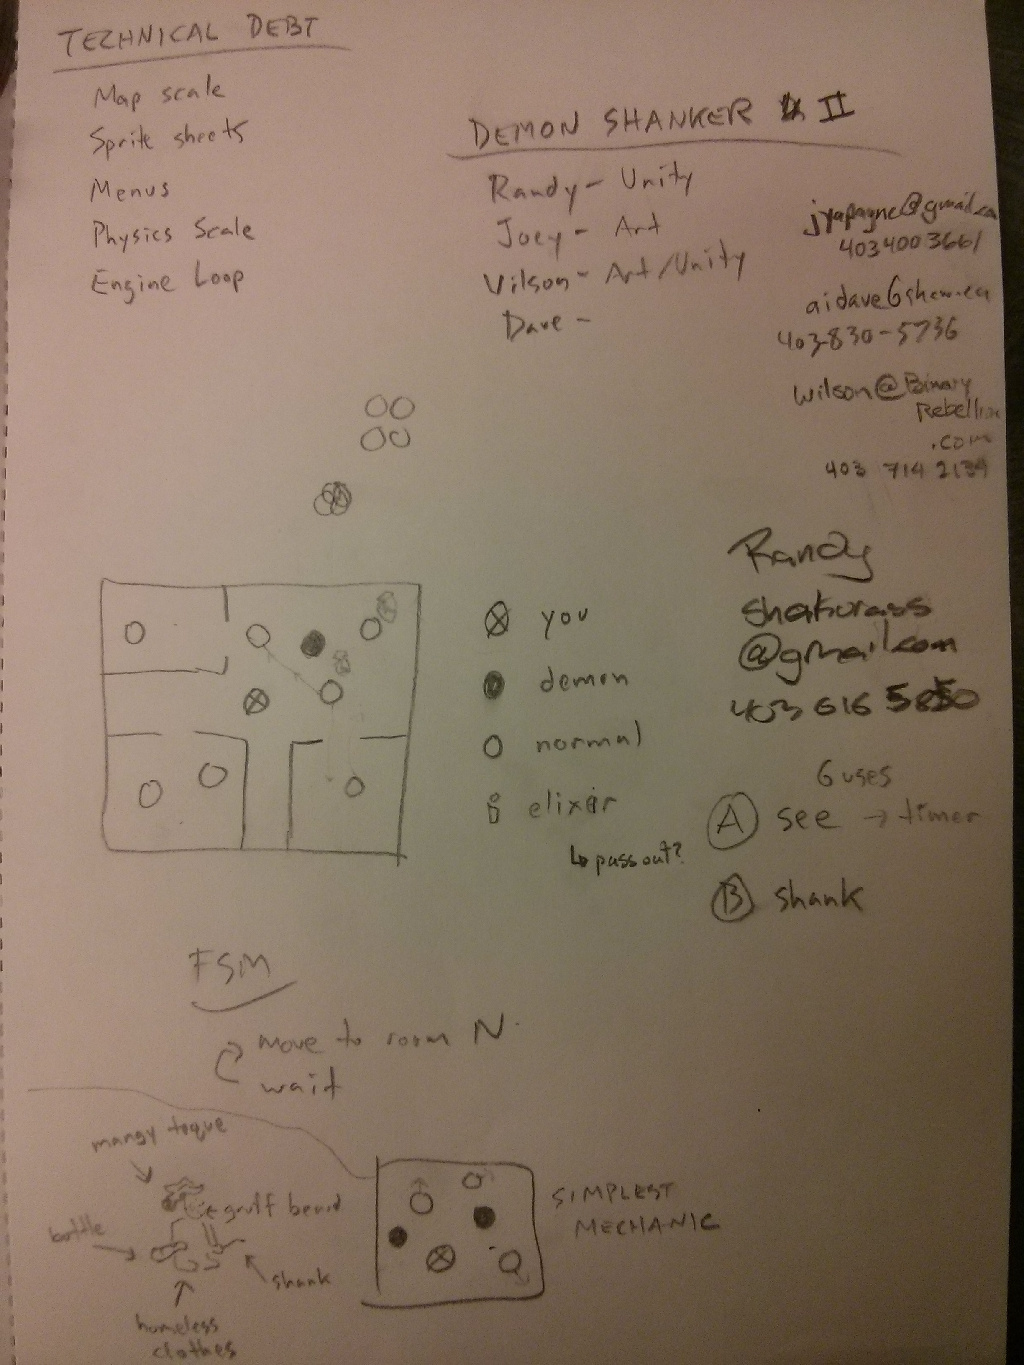 TECHNICAL DEBT
Map scale
Sprite sheets
Menus
Physics Scale
Engine Loop
DEMON SHANKER II
Randy - Unity
Joey - Art
Vilson - Art/Unity
Dave -
jyapayne@gmail.ca
403 400 3661
403-830-5736
wilson@Binary
Rebellion
.com
403 714 2139
Randy
@gmail.com
403 616 5850
you
demon
normal
elixir
↳ pass out?
6 uses
A see → timer
B shank
FSM
move to room N
wait
mangy toque
gruff beard
bottle
shank
homeless
clothes
SIMPLEST
MECHANIC